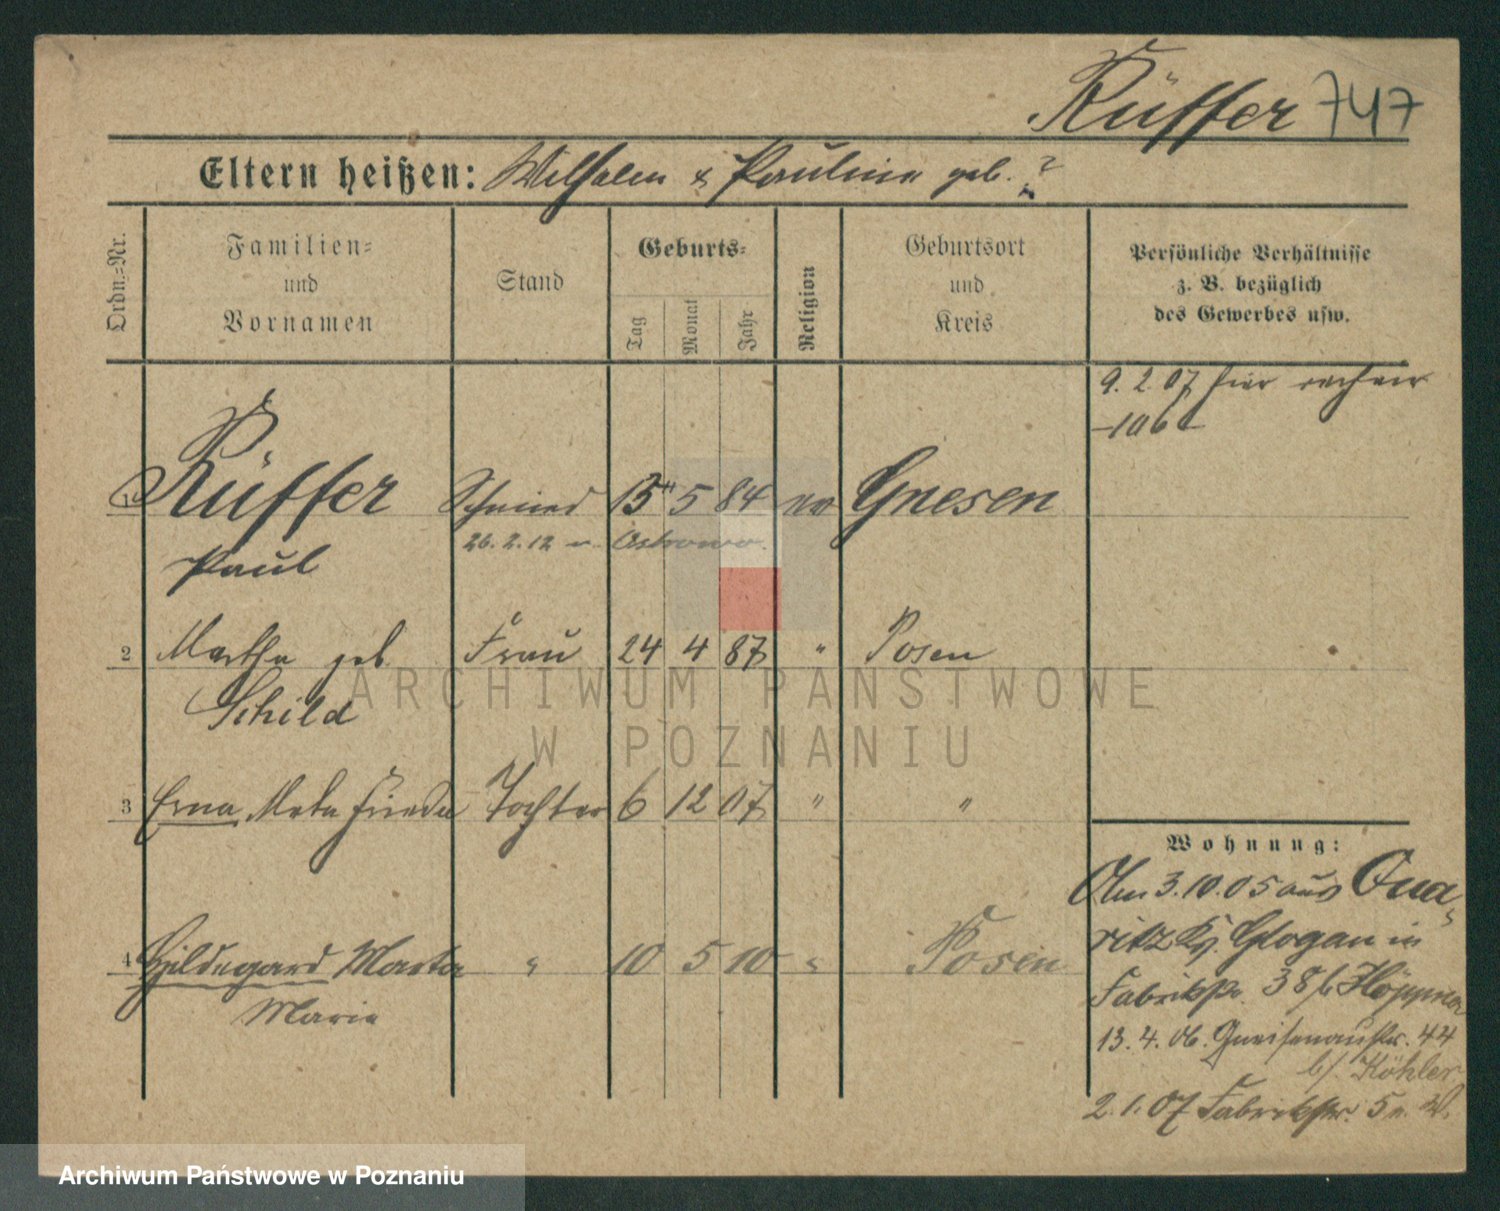 Rüffer 747
Eltern heißen: Wilhelm & Pauline geb. ?
Ordn.-Nr.
Familien-
und
Vornamen
Stand
Geburts-
Tag
Monat
Jahr
Religion
Geburtsort
und
Kreis
Persönliche Verhältnisse
z. B. bezüglich
des Gewerbes usw.
9. 2. 07 hier
1 Rüffer Schmied 15 5 84 ev Gnesen
26. 2. 12 Ostrowo.
Paul
2 Martha geb. Frau 24 4 87 " Posen
Schild
3 Erna Meta Frieda Tochter 6 12 07 " "
4 Hildegard Marta " 10 5 10 " Posen
Marie
Wohnung:
Am 3.10.05 aus Qua-
ritz Kr. Glogau in
Fabrikstr. 38 b/
13. 4. 06. Gneisenaustr. 44
b/ Köhler
2. 1. 07 Fabrikstr. 5
ARCHIWUM PAŃSTWOWE
W POZNANIU
Archiwum Państwowe w Poznaniu